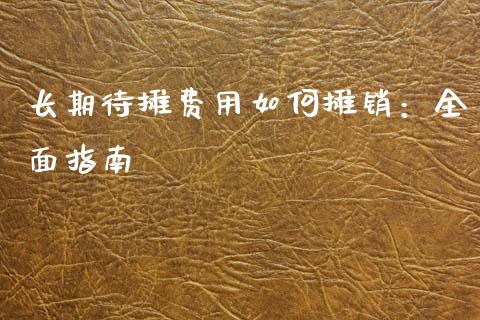 长期待摊费用如何摊销：全
面指南